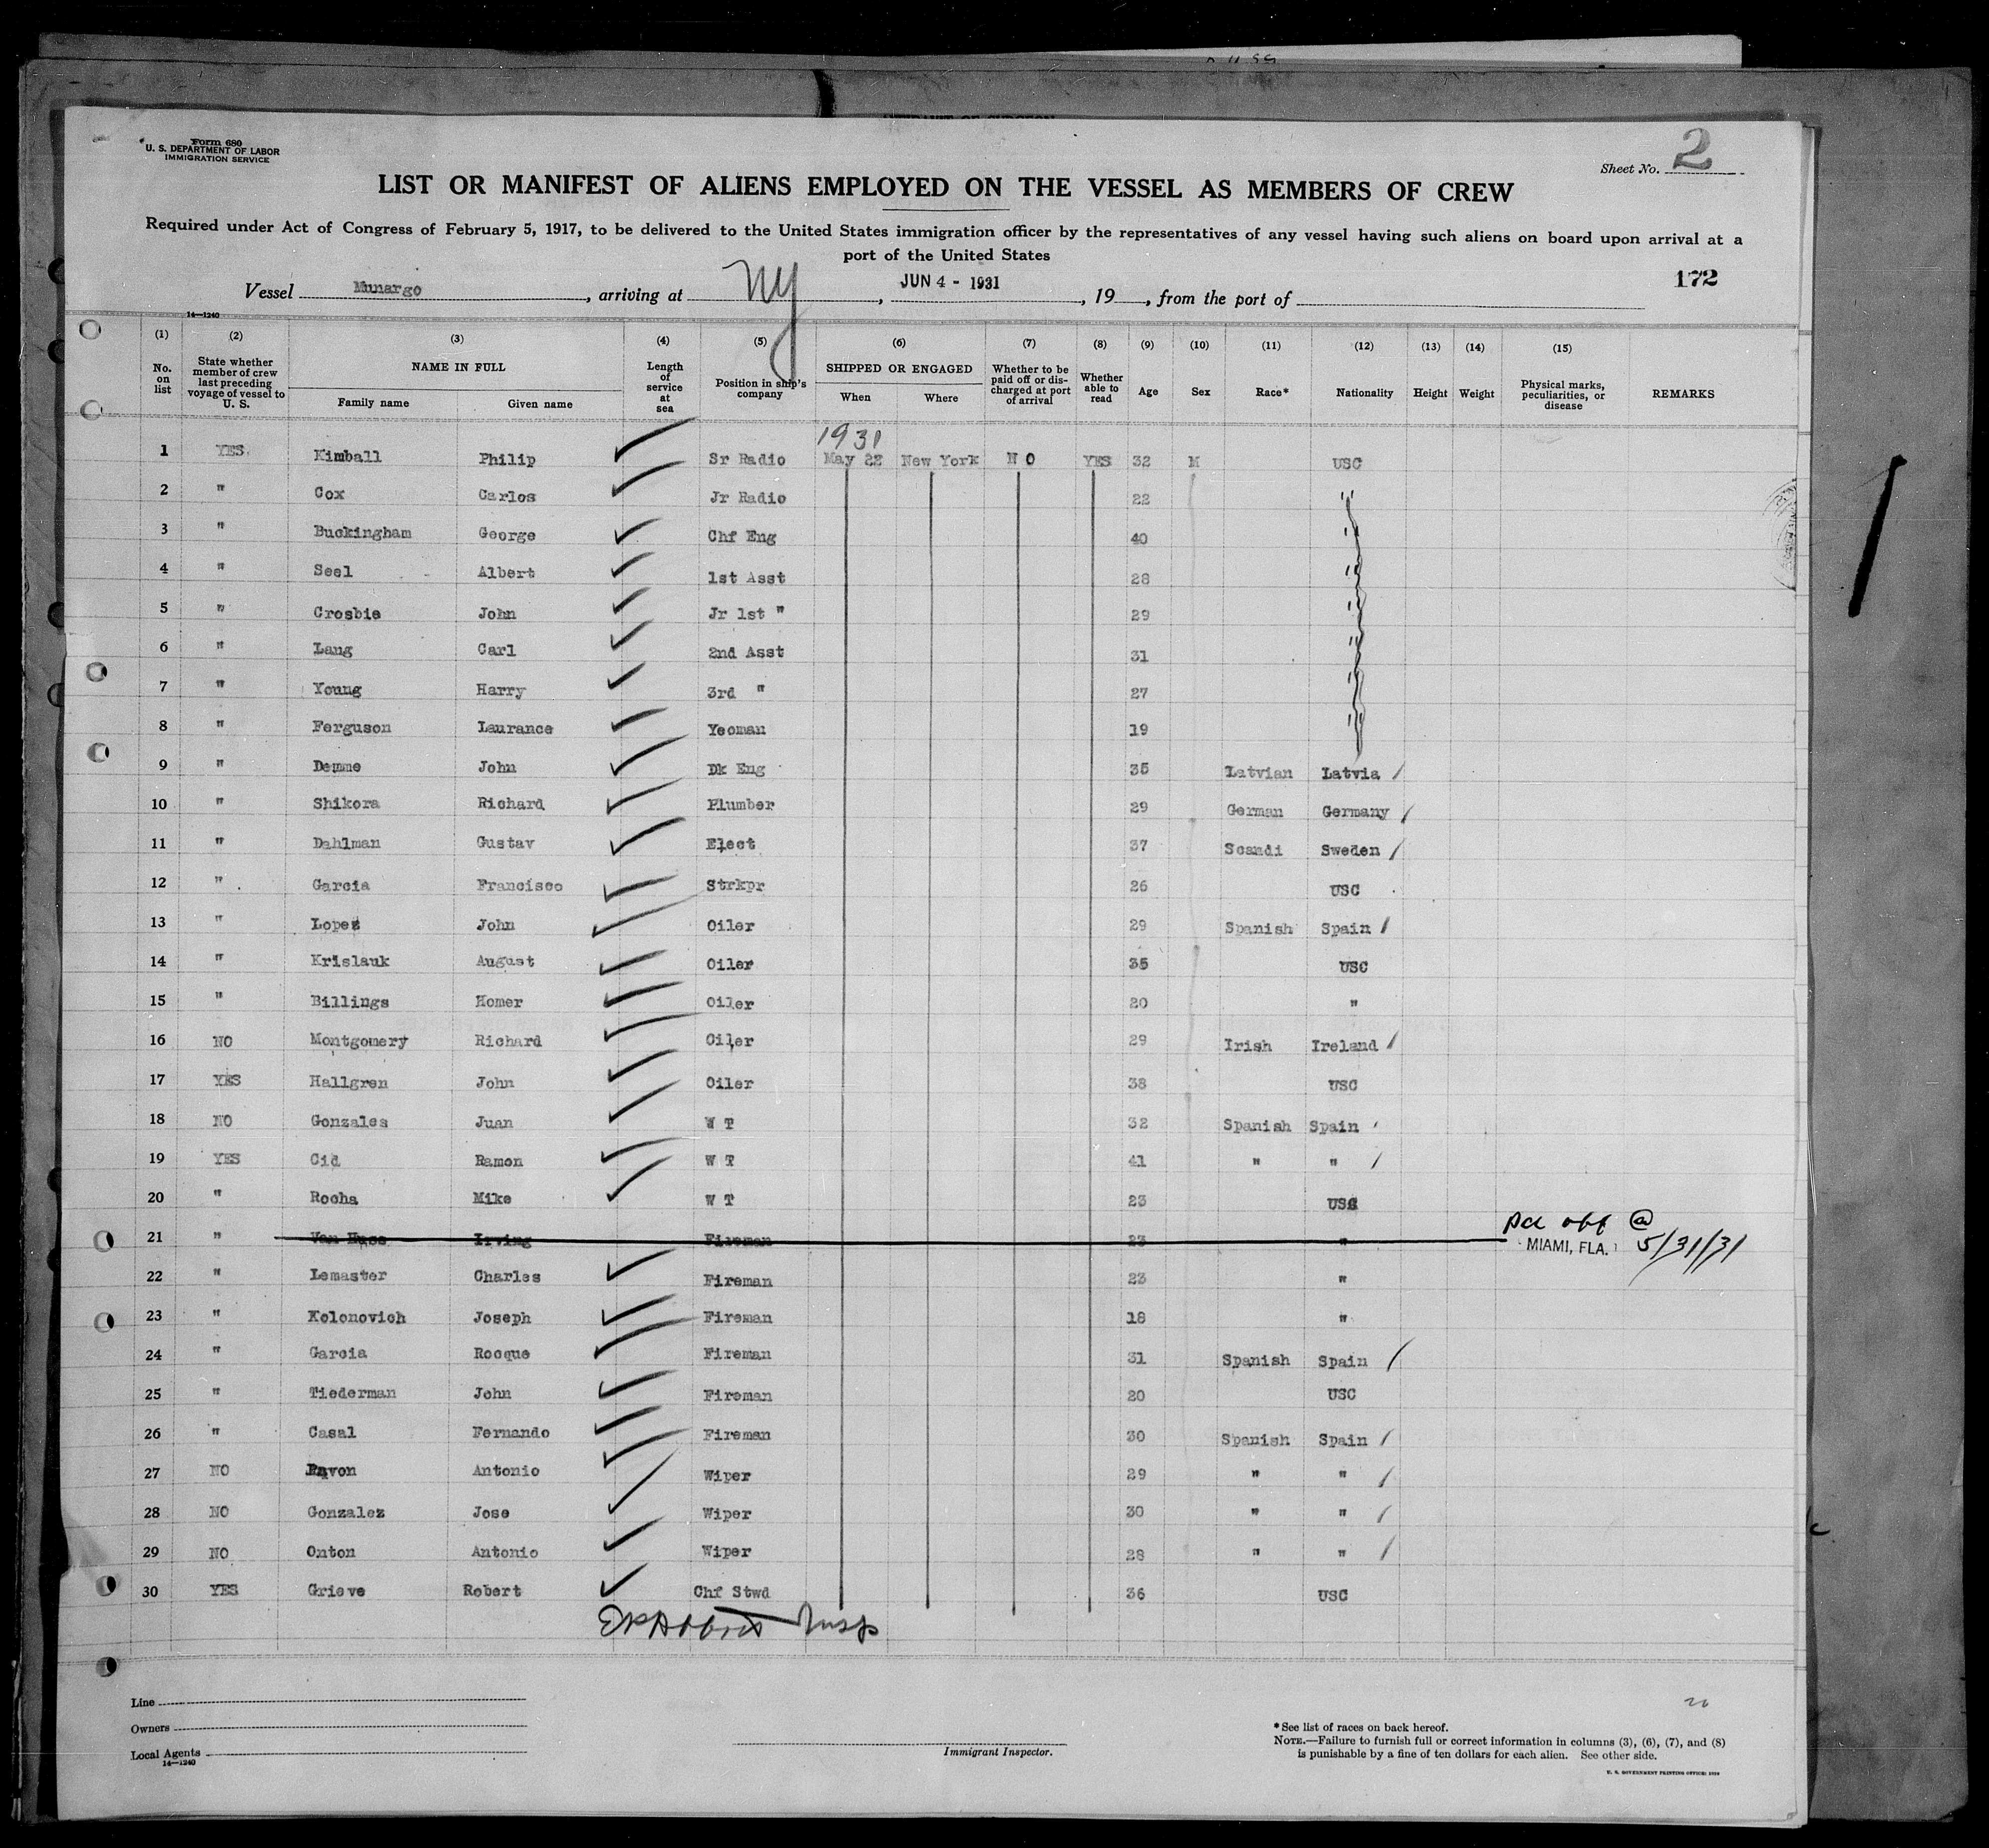 Form 680
U. S. DEPARTMENT OF LABOR
IMMIGRATION SERVICE
Sheet No. 2
LIST OR MANIFEST OF ALIENS EMPLOYED ON THE VESSEL AS MEMBERS OF CREW
Required under Act of Congress of February 5, 1917, to be delivered to the United States immigration officer by the representatives of any vessel having such aliens on board upon arrival at a
port of the United States
172
Vessel Munargo, arriving at NY, JUN 4 - 1931, 19, from the port of
14—1240
(1) (2) (3) (4) (5) (6) (7) (8) (9) (10) (11) (12) (13) (14) (15)
No. on list State whether member of crew last preceding voyage of vessel to U. S. NAME IN FULL Family name Given name Length of service at sea Position in ship's company SHIPPED OR ENGAGED When Where Whether to be paid off or discharged at port of arrival Whether able to read Age Sex Race* Nationality Height Weight Physical marks, peculiarities, or disease REMARKS
1931
1 YES Kimball Philip Sr Radio May 22 New York NO YES 32 M USC
2 " Cox Carlos Jr Radio 22 "
3 " Buckingham George Chf Eng 40 "
4 " Seel Albert 1st Asst 28 "
5 " Crosbie John Jr 1st " 29 "
6 " Lang Carl 2nd Asst 31 "
7 " Young Harry 3rd " 27 "
8 " Ferguson Laurance Yeoman 19 "
9 " Demme John Dk Eng 35 Latvian Latvia
10 " Shikora Richard Plumber 29 German Germany
11 " Dahlman Gustav Elect 37 Scandi Sweden
12 " Garcia Francisco Strkpr 26 USC
13 " Lopez John Oiler 29 Spanish Spain
14 " Krislauk August Oiler 35 USC
15 " Billings Homer Oiler 20 "
16 NO Montgomery Richard Oiler 29 Irish Ireland
17 YES Hallgren John Oiler 38 USC
18 NO Gonzales Juan W T 32 Spanish Spain
19 YES Cid Ramon W T 41 " "
20 " Rocha Mike W T 23 USC
21 " Van Huss Irving Fireman 23 " pd off @ MIAMI, FLA. 5/31/31
22 " Lemaster Charles Fireman 23 "
23 " Kolonovich Joseph Fireman 18 "
24 " Garcia Rocque Fireman 31 Spanish Spain
25 " Tiederman John Fireman 20 USC
26 " Casal Fernando Fireman 30 Spanish Spain
27 NO Pavon Antonio Wiper 29 " "
28 NO Gonzalez Jose Wiper 30 " "
29 NO Onton Antonio Wiper 28 " "
30 YES Grieve Robert Chf Stwd 36 USC
Insp
Line
Owners
Local Agents
14—1240
Immigrant Inspector.
20
*See list of races on back hereof.
NOTE.—Failure to furnish full or correct information in columns (3), (6), (7), and (8)
is punishable by a fine of ten dollars for each alien. See other side.